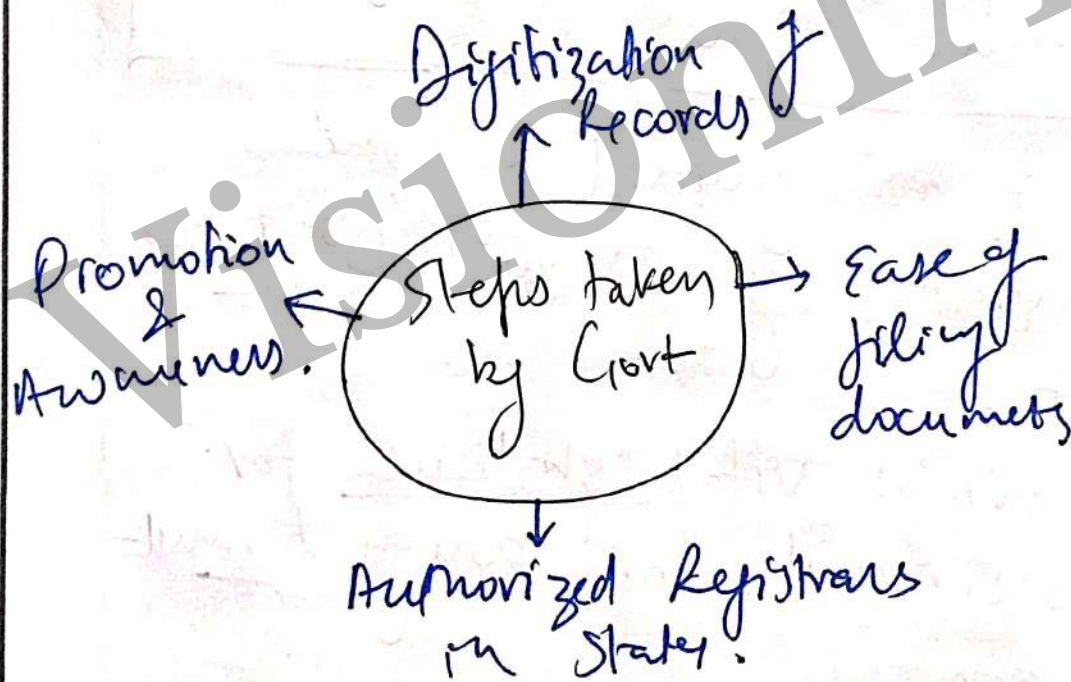 Digitization of
Records
Promotion
&
Awareness.
Steps taken
by Govt
Ease of
filing
documets
Authorized Registrars
in States.
Vision